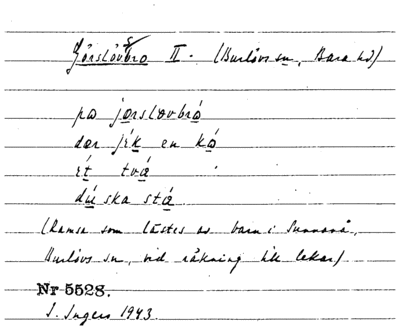 Görslövsbro II. (Burlövs sn, Bara hd)
pa jorslovbro
dær jék en kó
ét två
dú ska stå
(Ramsa som lästes av barn i Sunnanå,
Burlövs sn, vid räkning till lekar)
Nr 5528.
I. Ingers 1943.